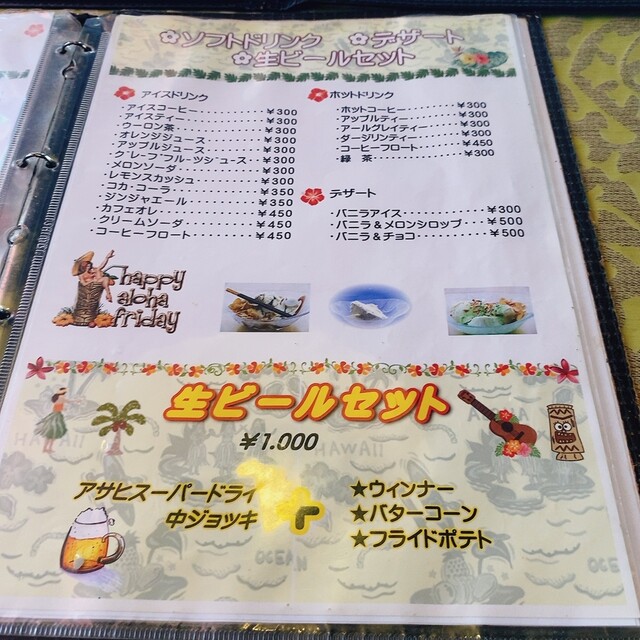 ソフトドリンク デザート
生ビールセット
アイスドリンク
・アイスコーヒー・・・・・・・・・・¥300
・アイスティー・・・・・・・・・・・¥300
・ウーロン茶・・・・・・・・・・・・¥300
・オレンジジュース・・・・・・・・¥300
・アップルジュース・・・・・・・・¥300
・グレープフルーツジュース・・・・¥300
・メロンソーダ・・・・・・・・・・・¥300
・レモンスカッシュ・・・・・・・・¥300
・コカ・コーラ・・・・・・・・・・・¥350
・ジンジャエール・・・・・・・・・¥350
・カフェオレ・・・・・・・・・・・・¥450
・クリームソーダ・・・・・・・・・¥450
・コーヒーフロート・・・・・・・・¥450
ホットドリンク
・ホットコーヒー・・・・・・・・¥300
・アップルティー・・・・・・・・¥300
・アールグレイティー・・・・・¥300
・ダージリンティー・・・・・・¥300
・コーヒーフロート・・・・・・¥450
・緑 茶・・・・・・・・・・・・¥300
デザート
・バニラアイス・・・・・・・・・・¥300
・バニラ&メロンシロップ・・・・¥500
・バニラ&チョコ・・・・・・・・・¥500
happy
aloha
friday
生ビールセット
¥1.000
アサヒスーパードライ
中ジョッキ
+
★ウィンナー
★バターコーン
★フライドポテト
HAWAII
HAWAII